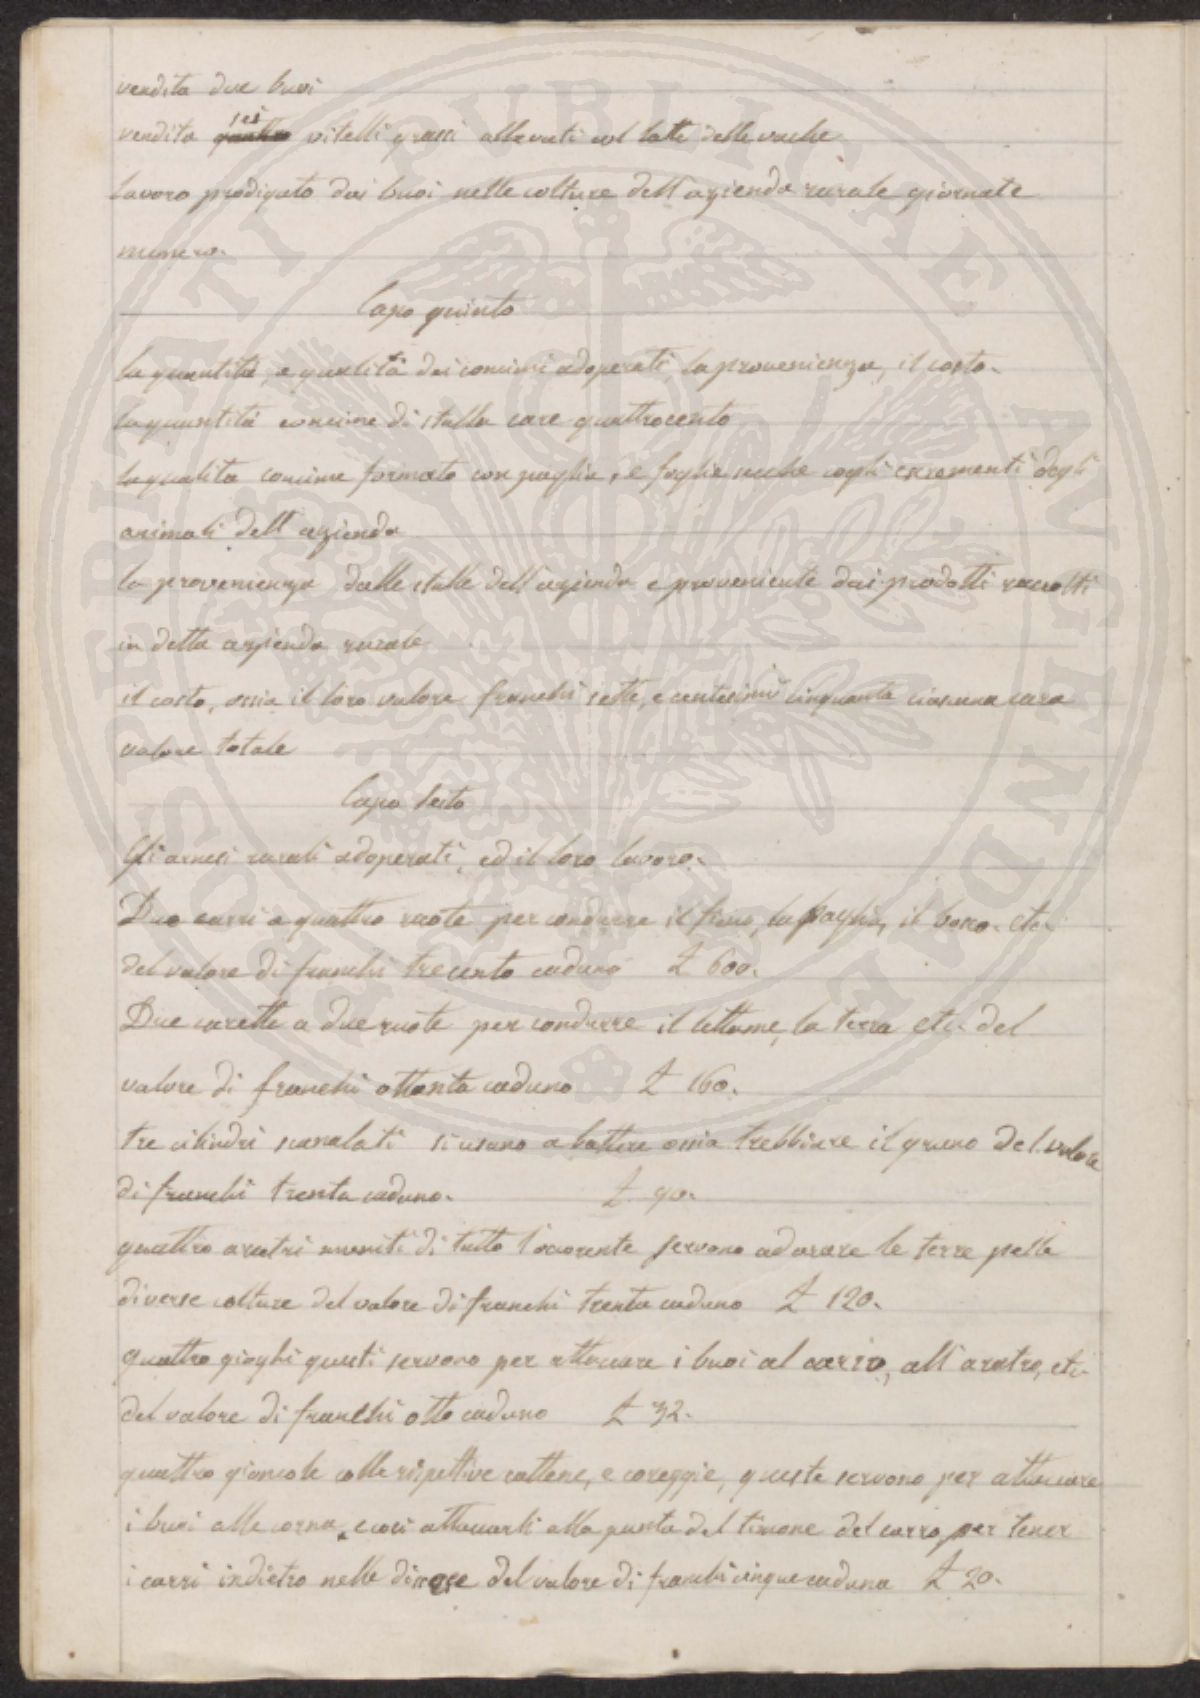 vendita due buoi
vendita quattro sei vitelli grassi allevati col latte delle vache
lavoro prodigato dai buoi nelle colture dell'azienda rurale giornate
numero.
Capo quinto
la quantità, e qualità dei concimi adoperati, la provenienza, il costo.
la quantità concime di stalla care quattrocento
la qualita concime formato con paglia, e foglie secche cogli escrementi degli
animali dell'azienda
la provenienza dalle stalle dell'azienda e proveniente dai prodotti raccolti
in detta azienda rurale
il costo, ossia il loro valore franchi sette, e centesimi cinquanta ciascuna cara
valore totale
Capo Sesto
Gli arnesi rurali adoperati, ed il loro lavoro.
Due carri a quattro ruote per condurre il fieno, la paglia, il bosco. etc.
del valore di franchi trecento caduno £ 600.
Due carette a due ruote per condurre il lettame, la terra etc. del
valore di franchi ottanta caduno £ 160.
tre cilindri scanalati si usano a battere ossia trebbiare il grano del valore
di franchi trenta caduno. £ 90.
quattro aratri muniti di tutto l'occorente servono ad arare le terre pelle
diverse colture del valore di franchi trenta caduno £ 120.
quattro gioghi questi servono per attaccare i buoi al carro, all'aratro, etc.
del valore di franchi otto caduno £ 32.
quattro gioncole colle rispettive cattene, e coreggie, queste servono per attaccare
i buoi alle corna, e così attaccarli alla punta del timone del carro, per tener
i carri indietro nelle discese del valore di franchi cinque caduna £ 20.
POSTERITATI PVBLICAE AVGENDAE